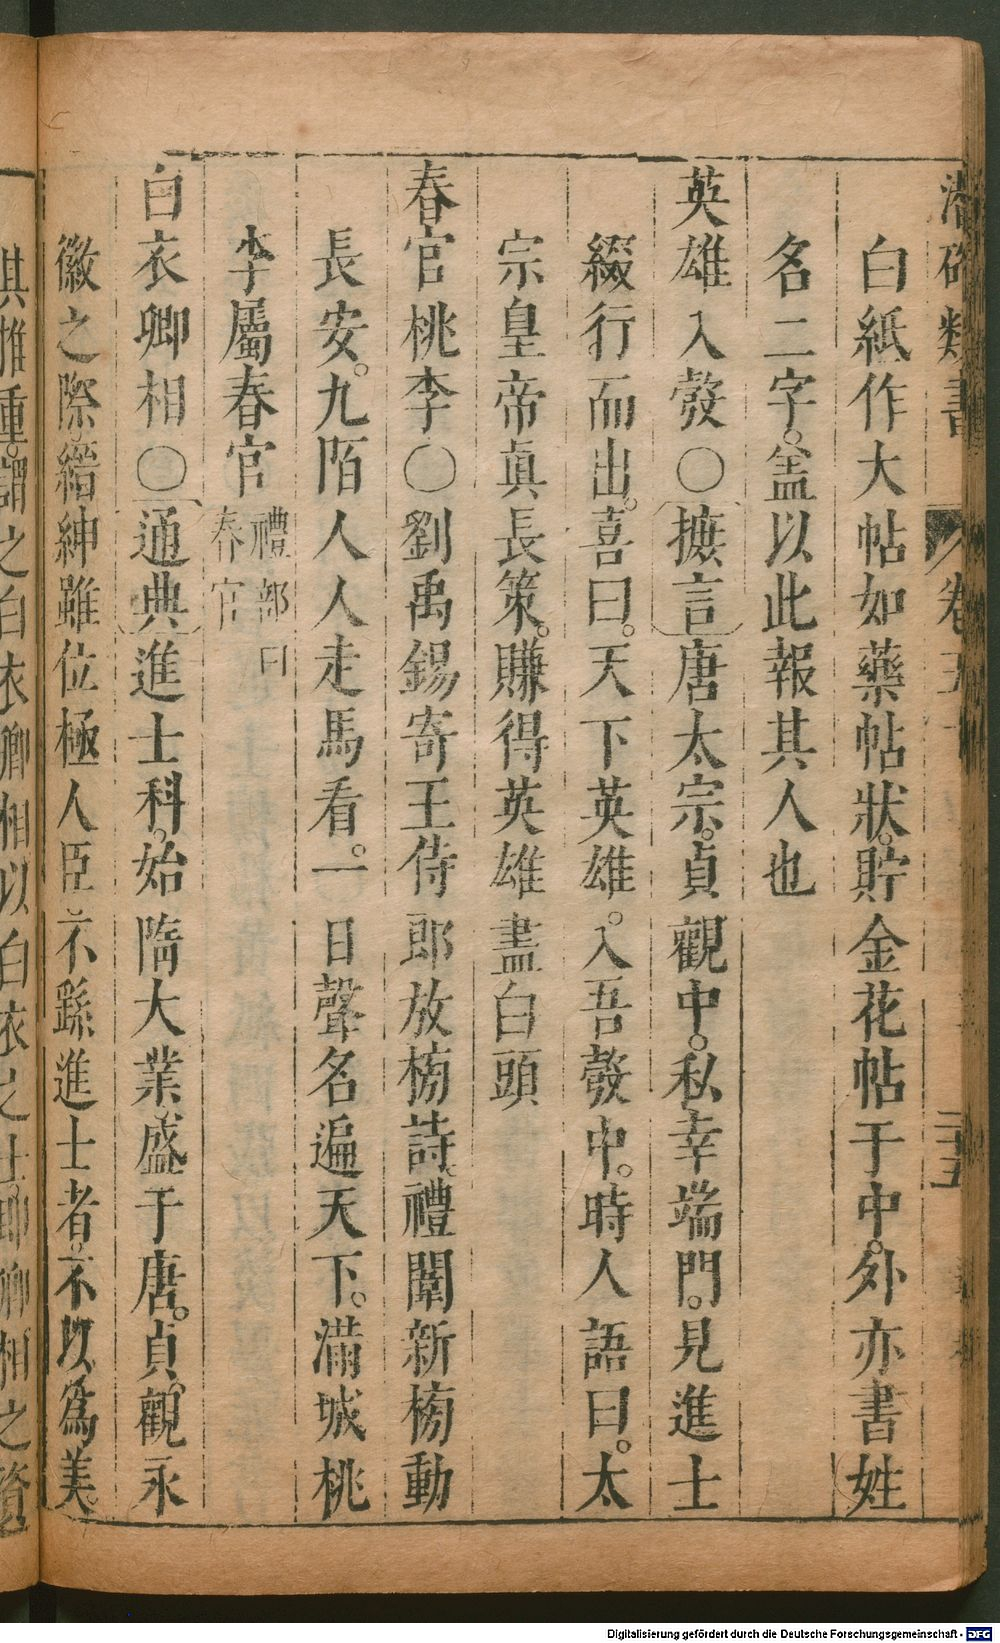 潛確類書 卷五十 二十五
白紙作大帖如藥帖狀。貯金花帖于中。外亦書姓
名二字。盖以此報其人也
英雄入彀〇摭言唐太宗。貞觀中。私幸端門。見進士
綴行而出。喜曰。天下英雄。入吾彀中。時人語曰。太
宗皇帝眞長策。賺得英雄盡白頭
春官桃李〇劉禹錫寄王侍郎放榜詩。禮闈新榜動
長安。九陌人人走馬看。一日聲名遍天下。滿城桃
李屬春官 禮部曰春官
白衣卿相〇通典進士科。始隋大業盛于唐。貞觀永
徽之際。縉紳雖位極人臣。不繇進士者。不以爲美。
其推重。謂之白衣卿相以白衣之士。即卿相之資
Digitalisierung gefördert durch die Deutsche Forschungsgemeinschaft - DFG